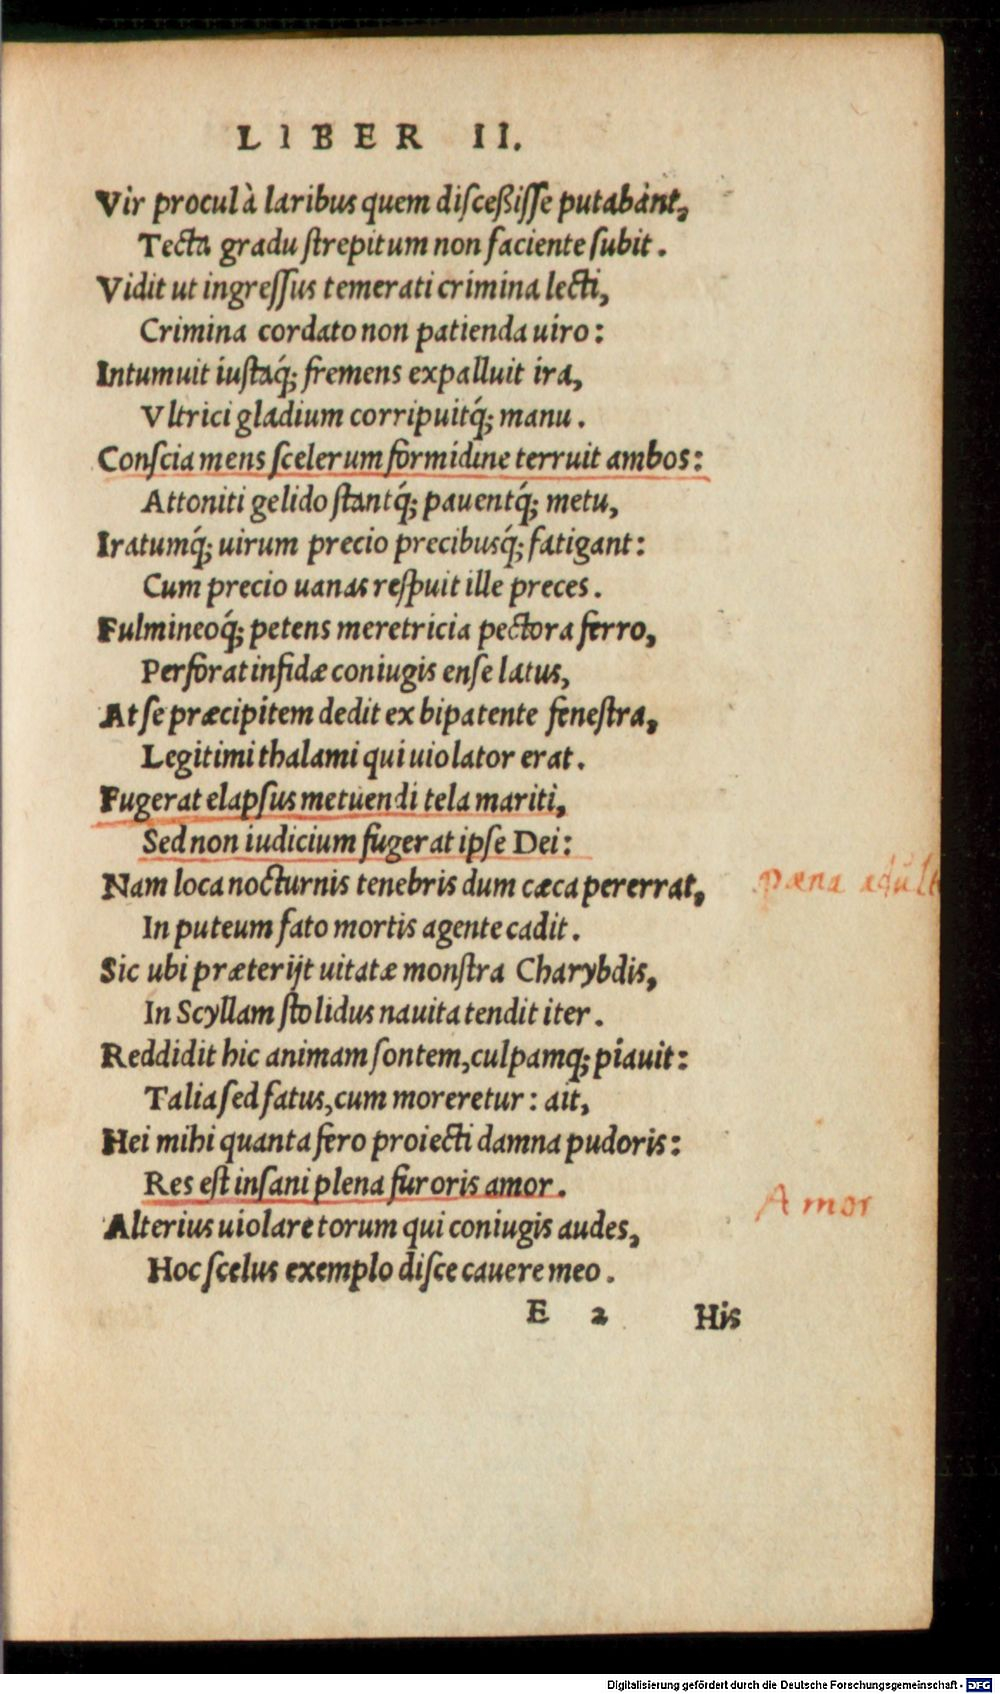 LIBER II.
Vir procul à laribus quem disceßisse putabant,
Tecta gradu strepitum non faciente subit.
Vidit ut ingressus temerati crimina lecti,
Crimina cordato non patienda uiro:
Intumuit iustaq́; fremens expalluit ira,
Vltrici gladium corripuitq́; manu.
Conscia mens scelerum formidine terruit ambos:
Attoniti gelido stantq́; pauentq́; metu,
Iratumq́; uirum precio precibusq́; fatigant:
Cum precio uanas respuit ille preces.
Fulmineoq́; petens meretricia pectora ferro,
Perforat infidæ coniugis ense latus,
At se præcipitem dedit ex bipatente fenestra,
Legitimi thalami qui uiolator erat.
Fugerat elapsus metuendi tela mariti,
Sed non iudicium fugerat ipse Dei:
Nam loca nocturnis tenebris dum cæca pererrat,
pæna adult
In puteum fato mortis agente cadit.
Sic ubi præterijt uitatæ monstra Charybdis,
In Scyllam stolidus nauita tendit iter.
Reddidit hic animam sontem, culpamq́; piauit:
Talia sed fatus, cum moreretur: ait,
Hei mihi quanta fero proiecti damna pudoris:
Res est insani plena furoris amor.
Amor
Alterius uiolare torum qui coniugis audes,
Hoc scelus exemplo disce cauere meo.
E 2 His
Digitalisierung gefördert durch die Deutsche Forschungsgemeinschaft - DFG